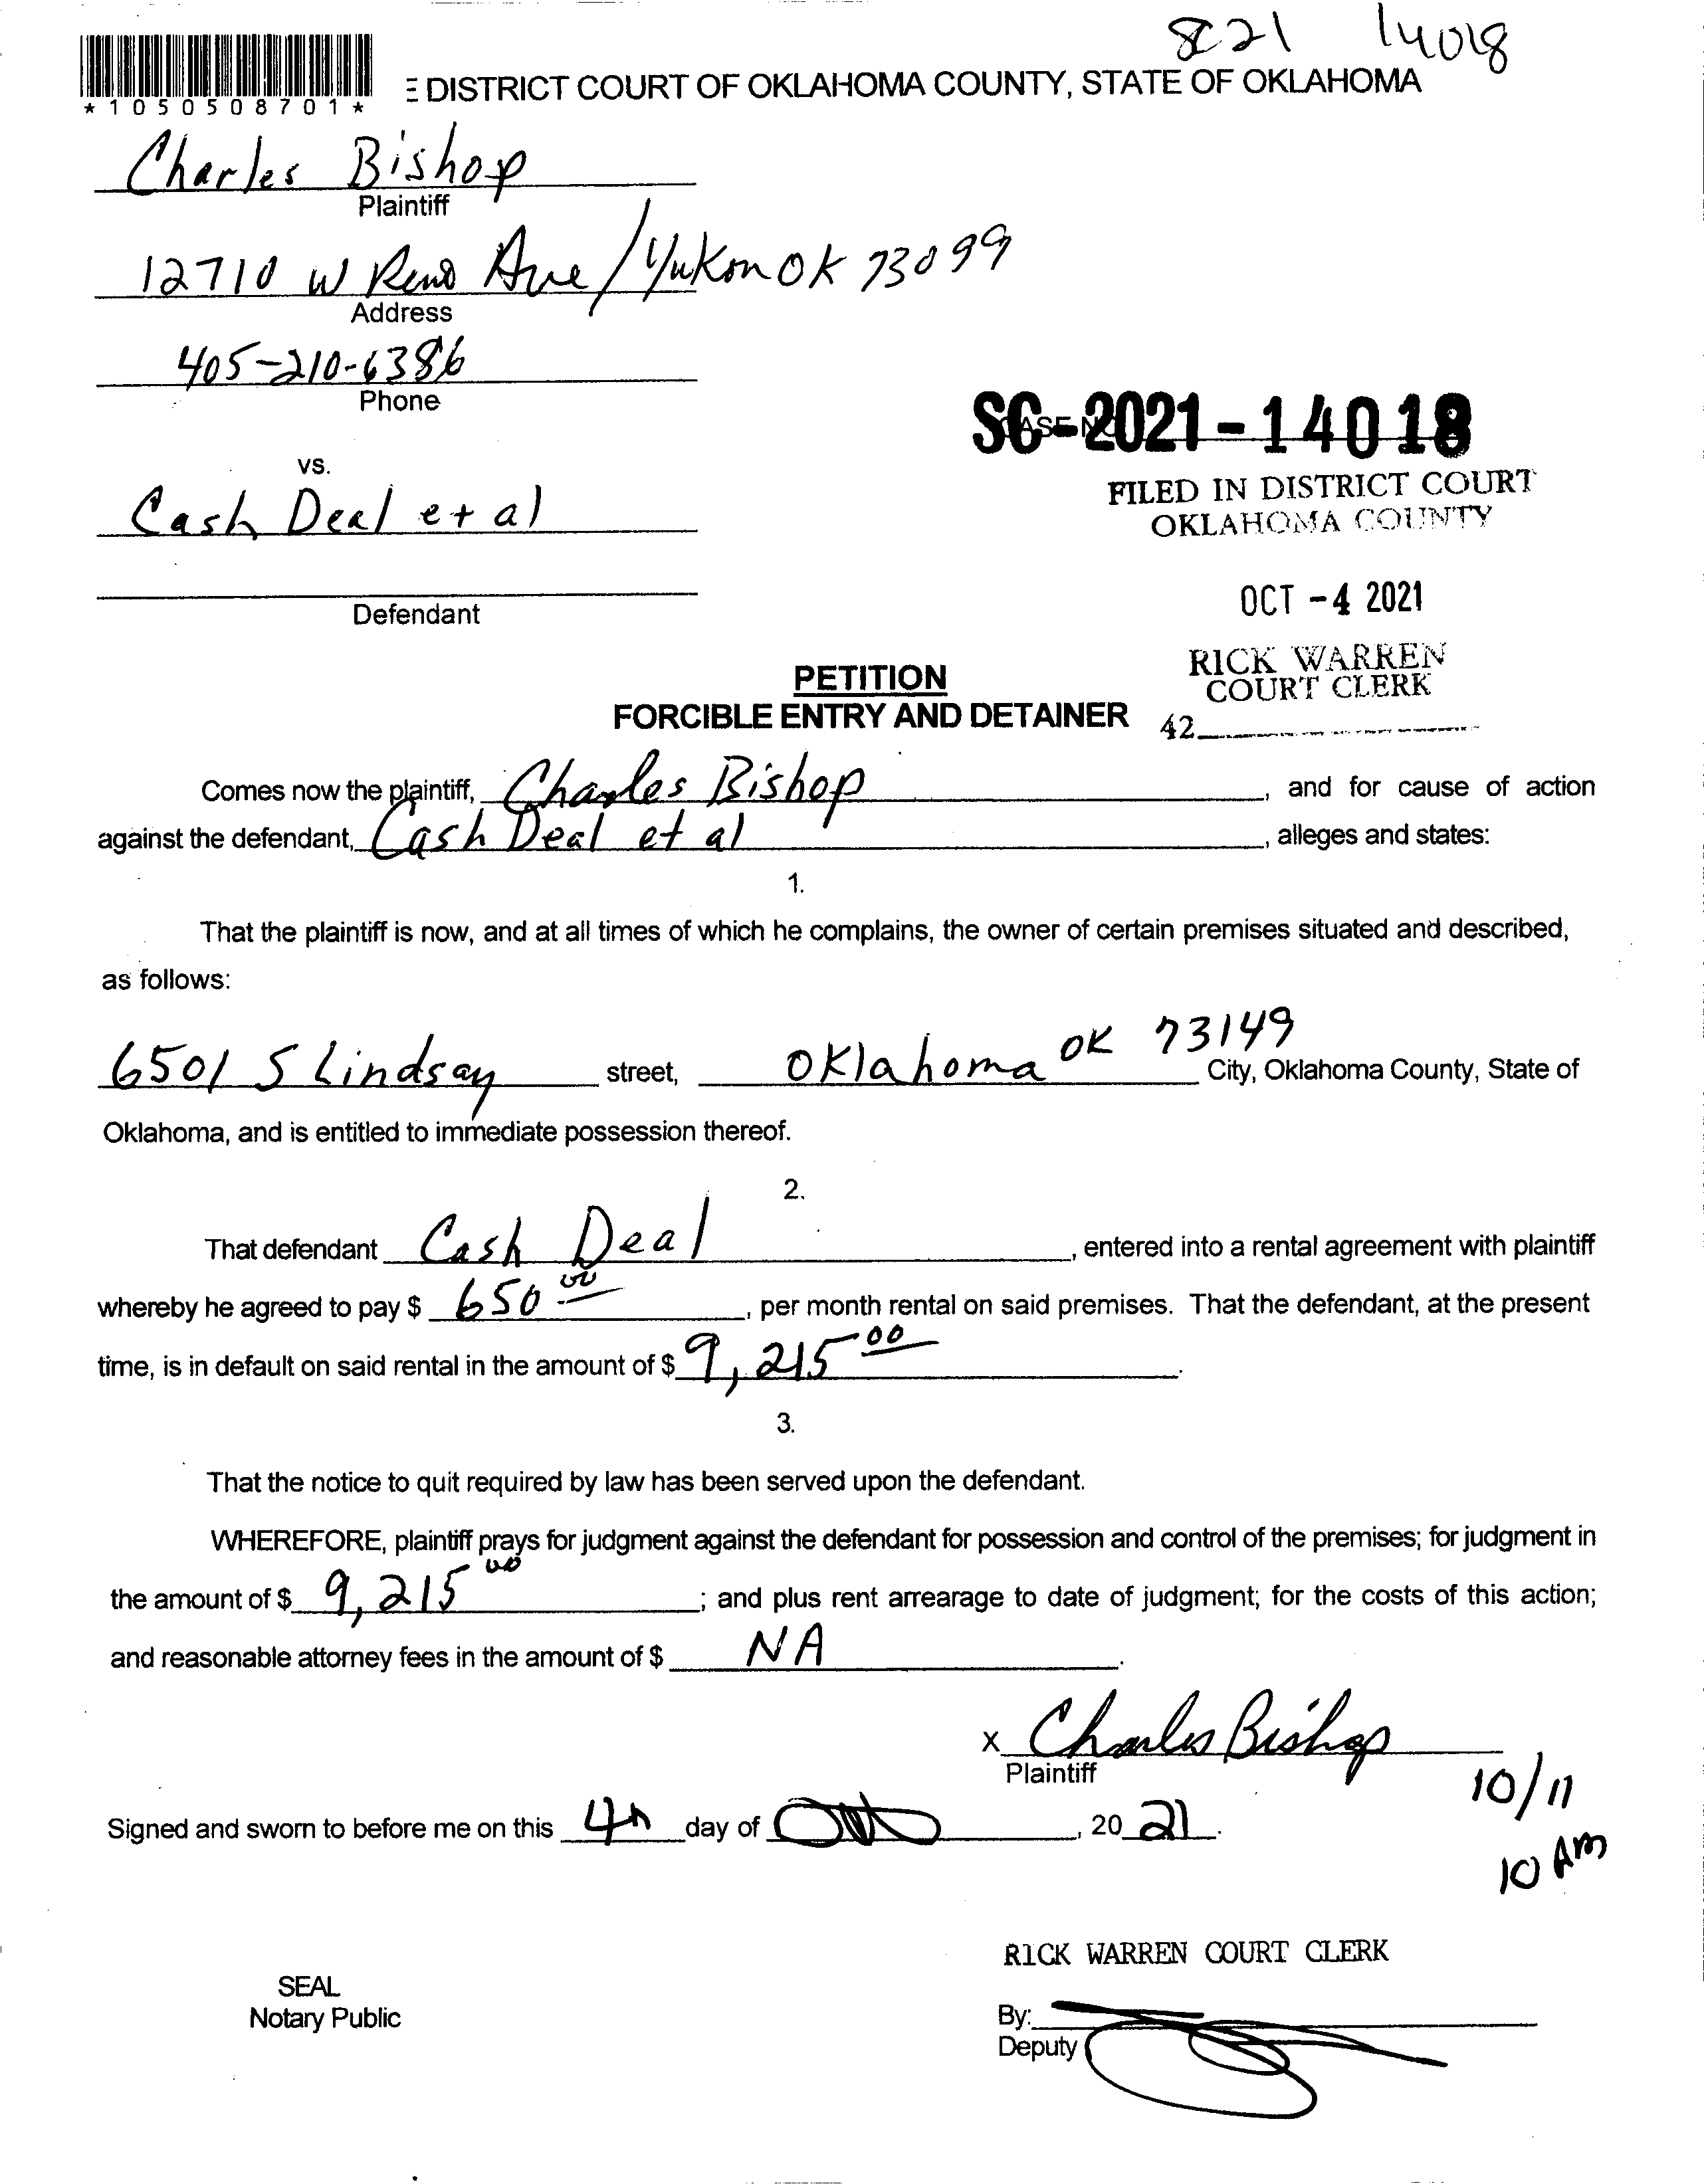 SC 21 14018
DISTRICT COURT OF OKLAHOMA COUNTY, STATE OF OKLAHOMA
*1050508701*
Charles Bishop
Plaintiff
12710 W Reno Ave / Yukon OK 73099
Address
405-210-6386
Phone
SC-2021-14018
vs.
FILED IN DISTRICT COURT
OKLAHOMA COUNTY
Cash Deal et al
OCT -4 2021
Defendant
RICK WARREN
COURT CLERK
42
PETITION
FORCIBLE ENTRY AND DETAINER
Comes now the plaintiff, Charles Bishop, and for cause of action
against the defendant, Cash Deal et al, alleges and states:
1.
That the plaintiff is now, and at all times of which he complains, the owner of certain premises situated and described,
as follows:
6501 S Lindsay street, Oklahoma OK 73149 City, Oklahoma County, State of
Oklahoma, and is entitled to immediate possession thereof.
2.
That defendant Cash Deal, entered into a rental agreement with plaintiff
whereby he agreed to pay $ 650 00, per month rental on said premises. That the defendant, at the present
time, is in default on said rental in the amount of $ 9,215 00.
3.
That the notice to quit required by law has been served upon the defendant.
WHEREFORE, plaintiff prays for judgment against the defendant for possession and control of the premises; for judgment in
the amount of $ 9,215 00; and plus rent arrearage to date of judgment; for the costs of this action;
and reasonable attorney fees in the amount of $ NA.
x Charles Bishop
Plaintiff
10/11
Signed and sworn to before me on this 4th day of , 20 21.
10 AM
RICK WARREN COURT CLERK
SEAL
Notary Public
By:
Deputy